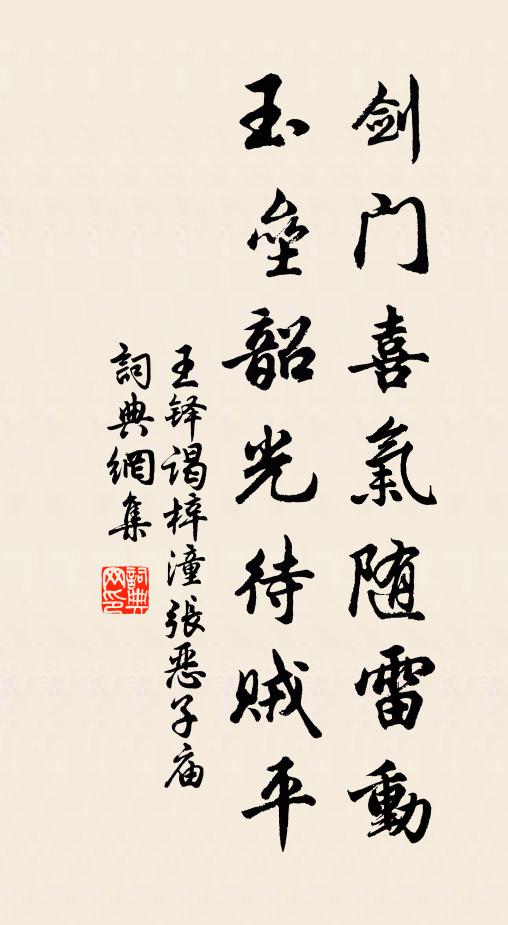 剑门喜氣随雷動
玉壘韶光待贼平
王铎谒梓潼張惡子庙
詞典網集
詞典
网印